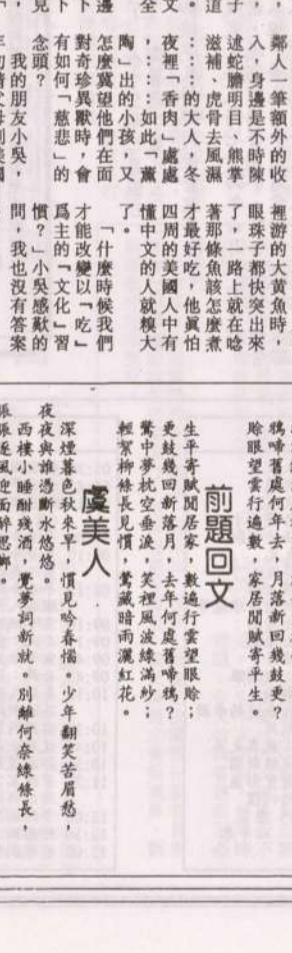 鄰人一筆額外的收
入，身邊是不時陳
述蛇膽明目、熊掌
滋補、虎骨去風濕
……的大人，冬
夜裡「香肉」處處
，……如此「薰
陶」出的小孩，又
怎麼冀望他們在面
對奇珍異獸時，會
有如何「慈悲」的
念頭？
我的朋友小吳，
裡游的大黃魚時，
眼珠子都快突出來
了，一路上就在唸
著那條魚該怎麼煮
才最好吃，他真怕
四周的美國人中有
懂中文的人就糗大
了。
「什麼時候我們
才能改變以「吃」
爲主的「文化」習
慣？」小吳感歎的
問，我也沒有答案
鴉啼舊處何年去，月落新回幾鼓更？
賒眼望雲行遍數，家居閒賦寄平生。
前題回文
生平寄賦閒居家，數遍行雲望眼賒；
更鼓幾回新落月，去年何處舊啼鴉？
驚中夢枕空垂淚，笑裡風波綠滿紗；
輕絮柳條長見慣，鶯藏暗雨灑紅花。
虞美人
深煙暮色秋來早，慣見吟春惱。少年翻笑苦眉愁，
夜夜與誰憑斷水悠悠。
西樓小睡酣殘酒，覺夢詞新就。別離何奈綠條長，